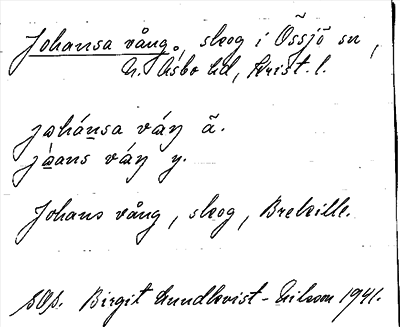 Johansa vång, skog i Össjö sn,
N. Åsbo hd, Krist. l.
jahánsa váŋ ä.
jàans váŋ y.
Johans vång, skog, Brekille.
SOP. Birgit Lundkvist-Nilsson 1941.